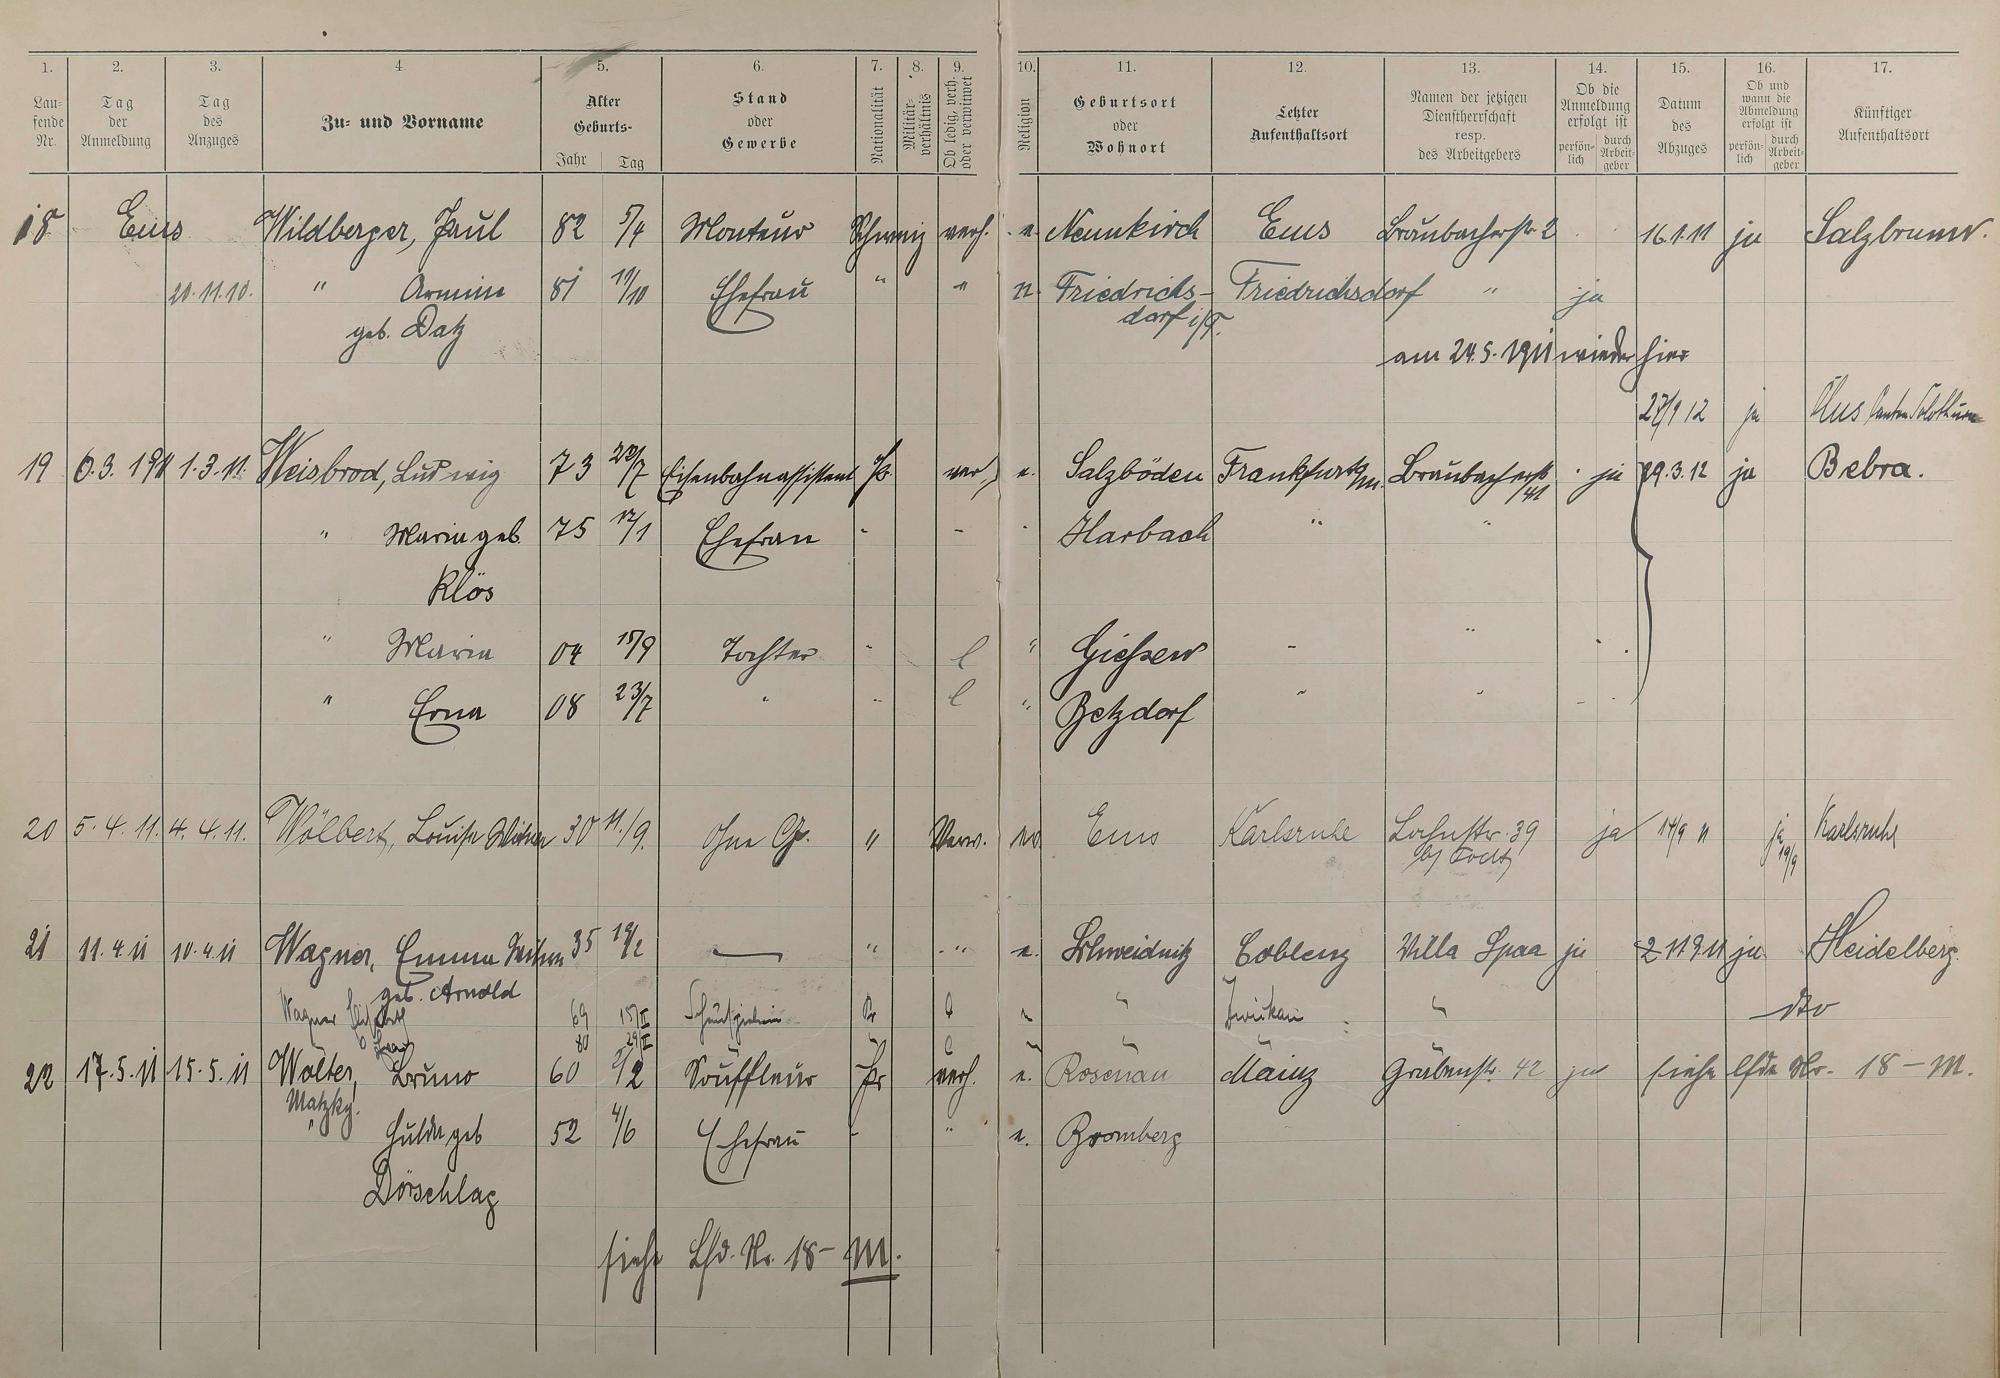 1. 2. 3. 4. 5. 6. 7. 8. 9. 10. 11. 12. 13. 14. 15. 16. 17.
Lau-
fende
Nr.
Tag
der
Anmeldung
Tag
des
Anzuges
Zu- und Vorname
Alter
Geburts-
Jahr Tag
Stand
oder
Gewerbe
Nationalität
Militär-
verhältnis
Ob ledig, verh.
oder verwitwet
Religion
Geburtsort
oder
Wohnort
Letzter
Aufenthaltsort
Namen der jetzigen
Dienstherrschaft
resp.
des Arbeitgebers
Ob die
Anmeldung
erfolgt ist
persön-
lich
durch
Arbeit-
geber
Datum
des
Abzuges
Ob und
wann die
Abmeldung
erfolgt ist
persön-
lich
durch
Arbeit-
geber
Künftiger
Aufenthaltsort
18 Ems Wildberger, Paul 82 5/4 Monteur Schweiz verh. e. Neunkirch Ems Braubacherstr. 2 16.1.11 ja Salzbrunn.
20.11.10. " Armine 81 19/10 Ehefrau " " n. Friedrichs- Friedrichsdorf " ja
geb. Datz dorf i/T.
am 24.5.1911 wieder hier
27/9 12 ja Canton Solothurn
19 6.3.1911 1.3.11. Weisbrod, Ludwig 73 22/7 Eisenbahnassistent Pr. verh. e. Salzböden Frankfurt a/m. Braubacherstr. ja 29.3.12 ja Bebra.
/41
" Maria geb. 75 12/1 Ehefrau " - " Harbach " "
Klös
" Maria 04 15/9 Tochter " l " Giessen " " "
" Erna 08 23/7 " " l " Betzdorf " " "
20 5.4.11. 4.4.11. Wölbert, Louise Witwe 30 11./9. ohne Gw. " Verw. Ems Karlsruhe Lahnstr. 39 ja 14/9 11 ja Karlsruhe
19/9
21 11.4.11 10.4.11 Wagner, Emma Witwe 35 19/2 — " " e. Schweidnitz Coblenz Villa Spaa ja 2 11.9.11 ja Heidelberg.
geb. Arnold
Wagner 69 15/II Pr l " " Zwickau " dto
80 29/II
22 17.5.11 15.5.11 Walter, Bruno 60 2/2 Souffleur Pr verh. e. Rosenau Mainz Grabenstr. 42 ja siehe lfde Nr. 18 - M.
Matzky.
" Hulda geb 52 4/6 Ehefrau - " e. Bromberg
Dörschlag
siehe Lfd. Nr. 18 - M.